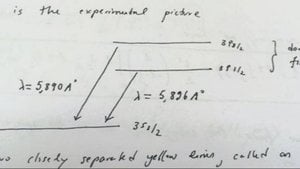 is the experimental picture
3P3/2
3P1/2
λ = 5,890 A°
λ = 5,896 A°
3S1/2
closely separated yellow lines, called